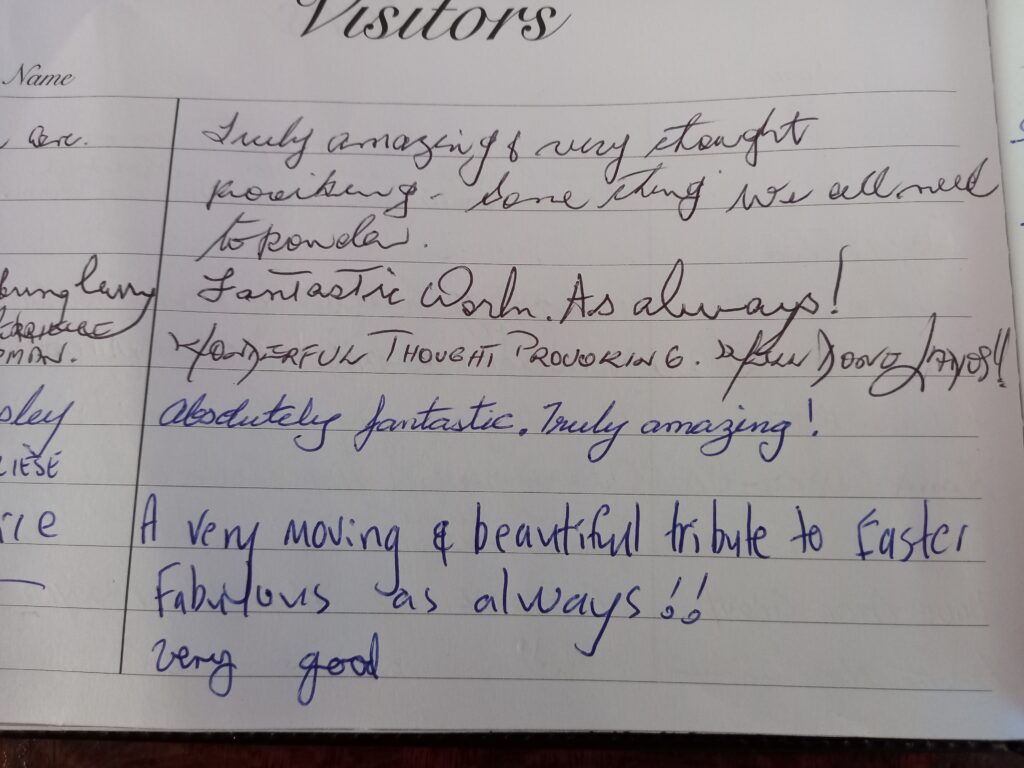 Visitors
Name
Truly amazing & very thought
proviking - Some thing We all need
to ponder.
Fantastic Work. As always!
WONDERFUL THOUGHT PROVOKING. WELL DONE
OMAN.
sley Absolutely fantastic. Truly amazing!
LIESE
rie A very moving & beautiful tribute to Easter
Fabulous as always!!
very good